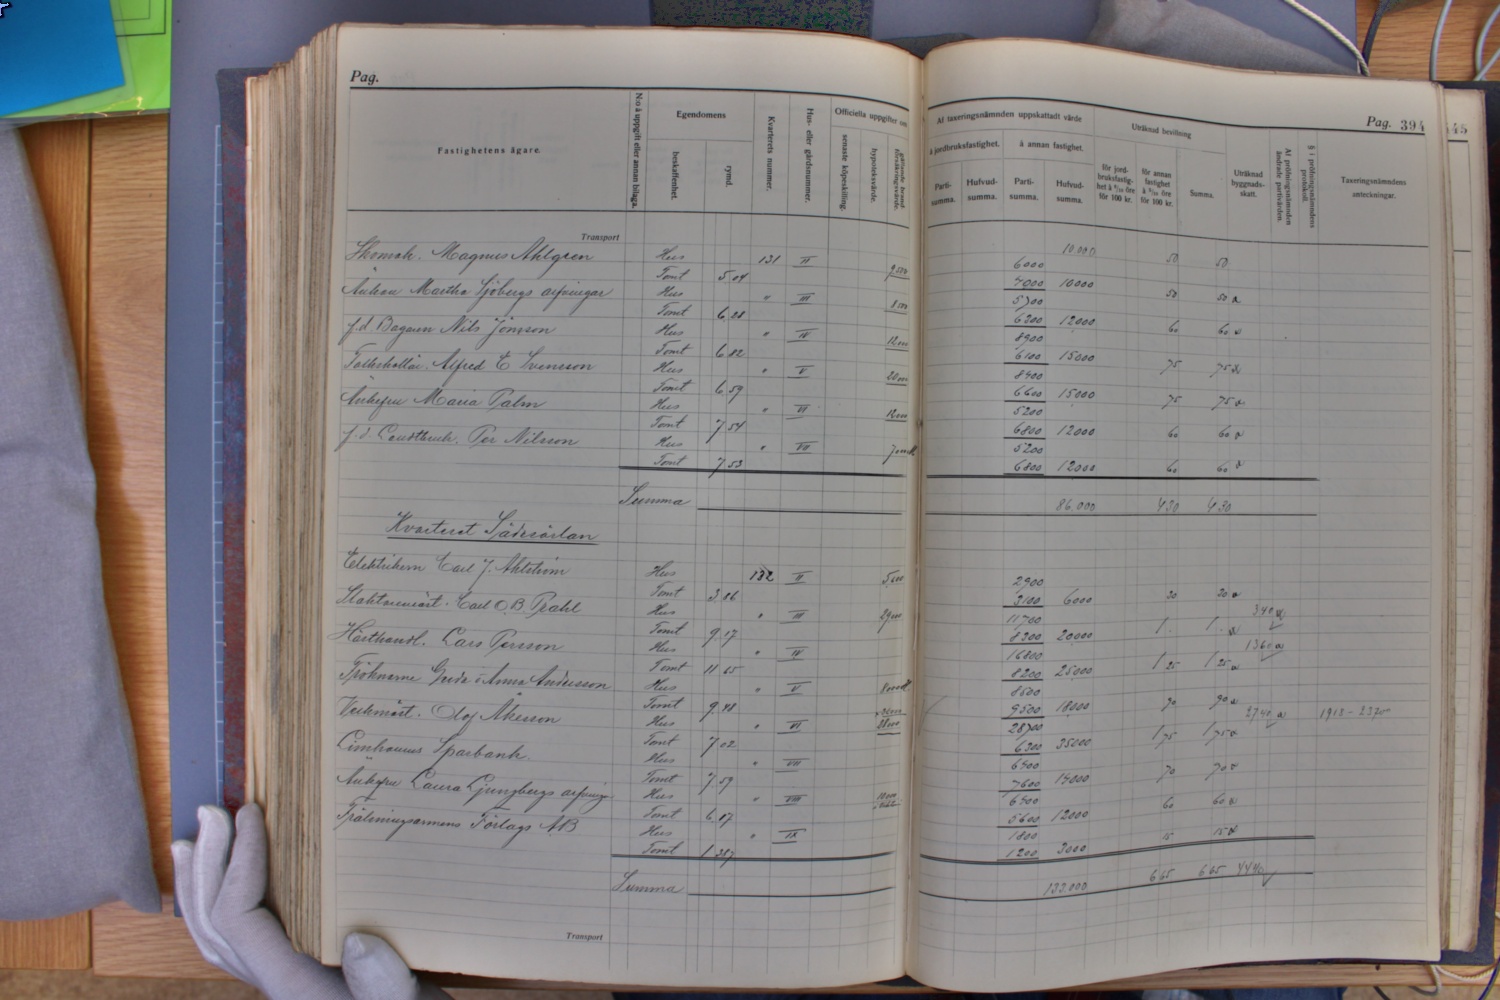 Pag.
Pag. 394
445
Fastighetens ägare.
N:o å uppgift eller annan bilaga.
Egendomens
beskaffenhet.
rymd.
Kvarterets nummer.
Hus- eller gårdsnummer.
Officiella uppgifter om
senaste köpeskilling.
hypoteksvärde.
Af taxeringsnämnden uppskattadt värde
å jordbruksfastighet.
å annan fastighet.
Parti-summa.
Hufvud-summa.
Parti-summa.
Hufvud-summa.
Uträknad bevillning
för jord-bruksfastig-het à 6/10 öre för 100 kr.
för annan fastighet à 5/10 öre för 100 kr.
Summa.
Uträknad byggnads-skatt.
Af pröfningsnämnden ändrade partivärden.
§ i pröfningsnämndens protokoll.
Taxeringsnämndens anteckningar.
Transport
Skomak. Magnus Ahlgren Hus 131 II 10.000 50 50
Tomt 5 04 6000
Änkan Martha Sjöbergs arfvingar Hus " III 4000 10000 50 50
Tomt 6 28 5700
f.d. Bagaren Nils Jönsson Hus " IV 6200 12000 60 60
Tomt 6 82 8900
Alfred E Svensson Hus " V 6100 15000 75 75
Tomt 6 59 8400
Änkefru Maria Palm Hus " VI 6600 15000 75 75
Tomt 7 54 5200
f.d. Landtbruk. Per Nilsson Hus " VII 6800 12000 60 60
5200
Tomt 7 53 6800 12000 60 60
Summa 86.000 430 430
Kvarteret Sädesärlan
Elektrikern Carl J. Ahlström Hus 132 II 2900
Tomt 3 86 3100 6000 30 30
Carl O.B. Prahl Hus " III 11700 340
Tomt 9 17 8300 20000 1 1
Hästhandl. Lars Persson Hus " IV 16800 1360
Tomt 11 65 8200 25000 1 25 1 25
Fröknarne Gerda o Anna Andersson Hus " V 8500
Tomt 9 48 9500 18000 90 90
Verkmäst. Olof Åkesson Hus " VI 28700 2740 1912-2370
Tomt 7 02 6300 35000 1 75 1 75
Limhamns Sparbank Hus " VII 6400
Tomt 7 59 7600 14000 70 70
Änkefru Laura Ljungbergs arfvingar Hus " VIII 6400
Tomt 6 17 5600 12000 60 60
Frälsningsarmens Förlags AB Hus " IX 1800 15 15
Tomt 1 387 1200 3000
Summa 133.000 665 665 4440
Transport